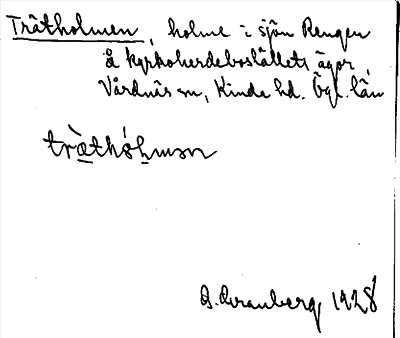 Trätholmen, holme i sjön Rengen
å kyrkoherdeboställets ägor
Vårdnäs sn, Kinda hd. Ögl. län
A. Granberg 1928